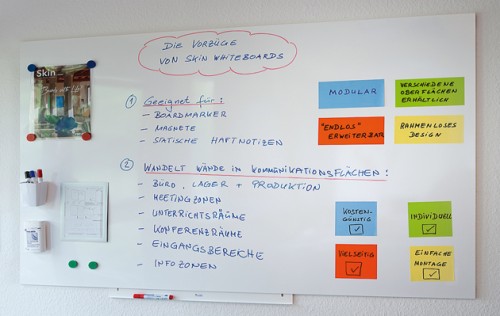 DIE VORZÜGE
VON SKIN WHITEBOARDS
Skin
① Geeignet für:
– BOARDMARKER
– MAGNETE
– STATISCHE HAFTNOTIZEN
MODULAR
VERSCHIEDENE
OBERFLÄCHEN
ERHÄLTLICH
"ENDLOS"
ERWEITERBAR
RAHMENLOSES
DESIGN
② WANDELT WÄNDE IN KOMMUNIKATIONSFLÄCHEN:
– BÜRO, LAGER + PRODUKTION
– MEETINGZONEN
– UNTERRICHTSRÄUME
– KONFERENZRÄUME
– EINGANGSBEREICHE
– INFOZONEN
KOSTEN-
GÜNSTIG
INDIVIDUELL
VIELSEITIG
EINFACHE
MONTAGE